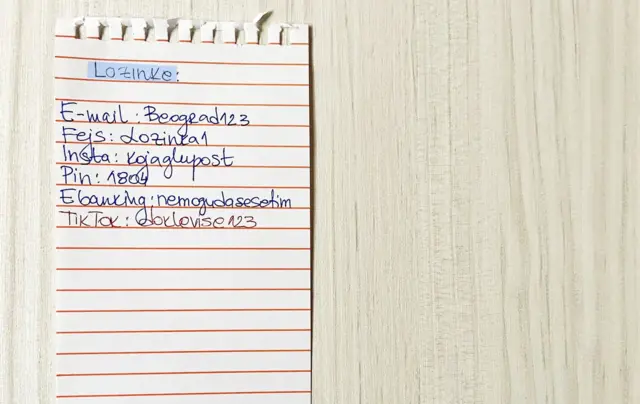 Lozinke:
E-mail: Beograd123
Fejs: Lozinka1
Insta: kojaglupost
Pin: 1804
Ebanking: nemogudasesetim
TikTok: dokleovise123